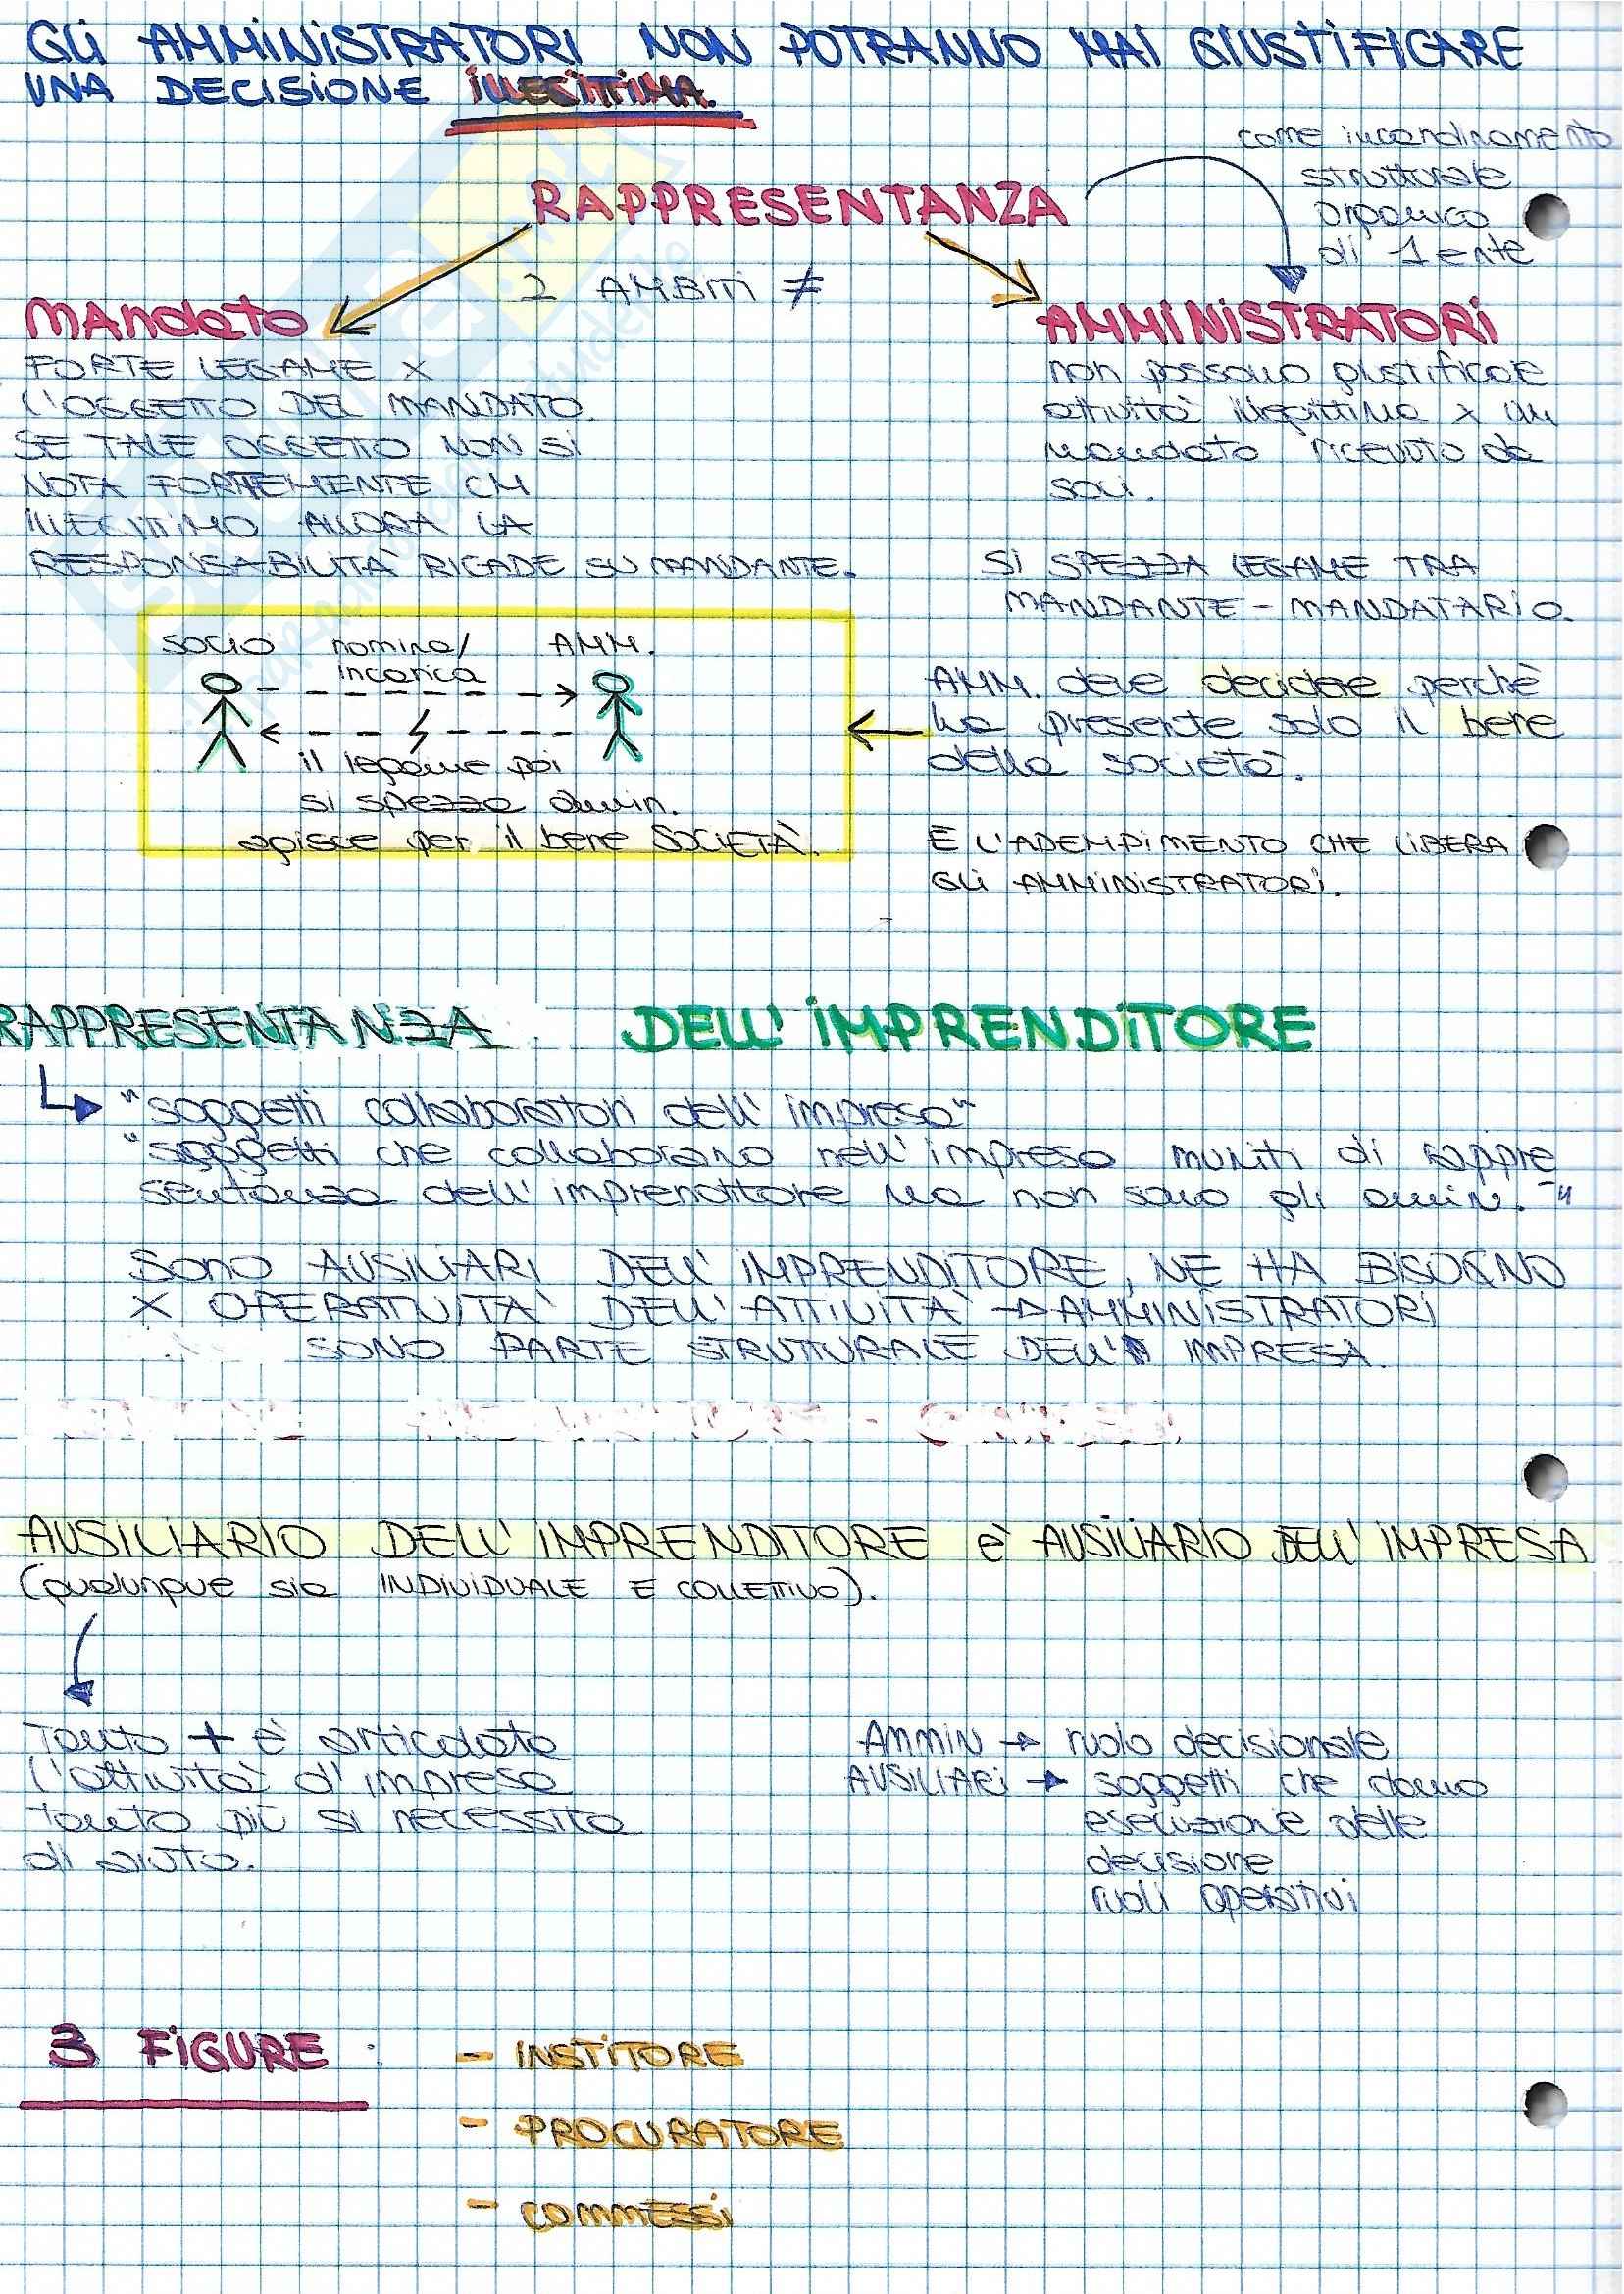 GLI AMMINISTRATORI NON POTRANNO MAI GIUSTIFICARE
UNA DECISIONE ILLEGITTIMA.
come incardinamento
strutturale
organico
di 1 ente
RAPPRESENTANZA
2 AMBITI ≠
MANDATO
FORTE LEGAME X
L'OGGETTO DEL MANDATO.
SE TALE OGGETTO NON SI
NOTA FORTEMENTE CM
ILLEGITTIMO ALLORA LA
RESPONSABILITÀ RICADE SU MANDANTE.
AMMINISTRATORI
non possono giustificare
attività illegittima x un
mandato ricevuto da
soci.
SI SPEZZA LEGAME TRA
MANDANTE - MANDATARIO.
SOCIO nomina/ AMM.
incarica
il legame poi
si spezza ammin.
agisce per il bene SOCIETÀ.
AMM. deve decidere perchè
ha presente solo il bene
della società.
È L'ADEMPIMENTO CHE LIBERA
GLI AMMINISTRATORI.
RAPPRESENTANZA DELL'IMPRENDITORE
"soggetti collaboratori dell'impresa"
"soggetti che collaborano nell'impresa muniti di rappre
sentanza dell'imprenditore ma non sono gli ammin."
SONO AUSILIARI DELL'IMPRENDITORE, NE HA BISOGNO
X OPERATIVITÀ DELL'ATTIVITÀ → AMMINISTRATORI
SONO PARTE STRUTTURALE DELL' IMPRESA.
AUSILIARIO DELL'IMPRENDITORE è AUSILIARIO DELL'IMPRESA
(qualunque sia INDIVIDUALE E COLLETTIVO).
Tanto + è articolata
l'attività d'impresa
tanto più si necessita
di aiuto.
AMMIN → ruolo decisionale
AUSILIARI → soggetti che danno
esecuzione delle
decisione
ruoli operativi
3 FIGURE :
- INSTITORE
- PROCURATORE
- COMMESSI